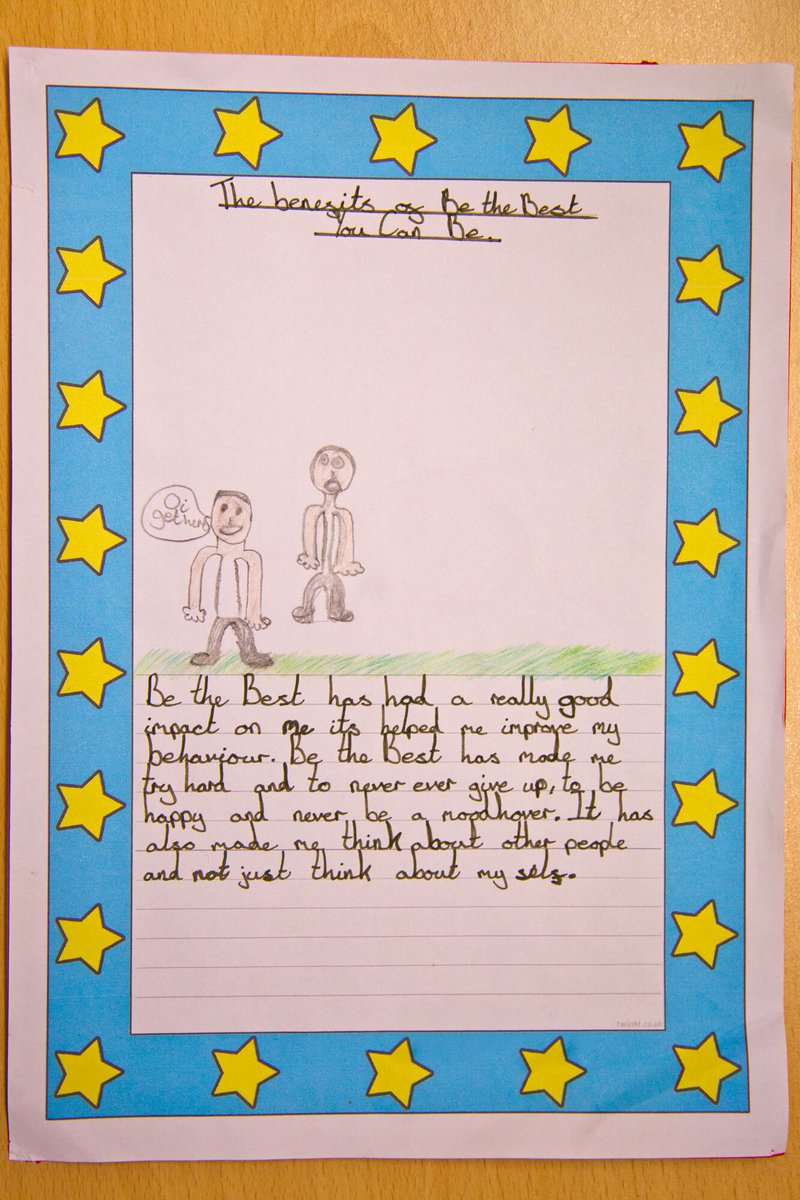 The benefits of Be the Best
You Can Be.
Oi
get here
Be the Best has had a really good
impact on me its helped me improve my
behaviour. Be the Best has made me
try hard and to never ever give up, to be
happy and never be a moodhover. It has
also made me think about other people
and not just think about my self.
twinkl.co.uk